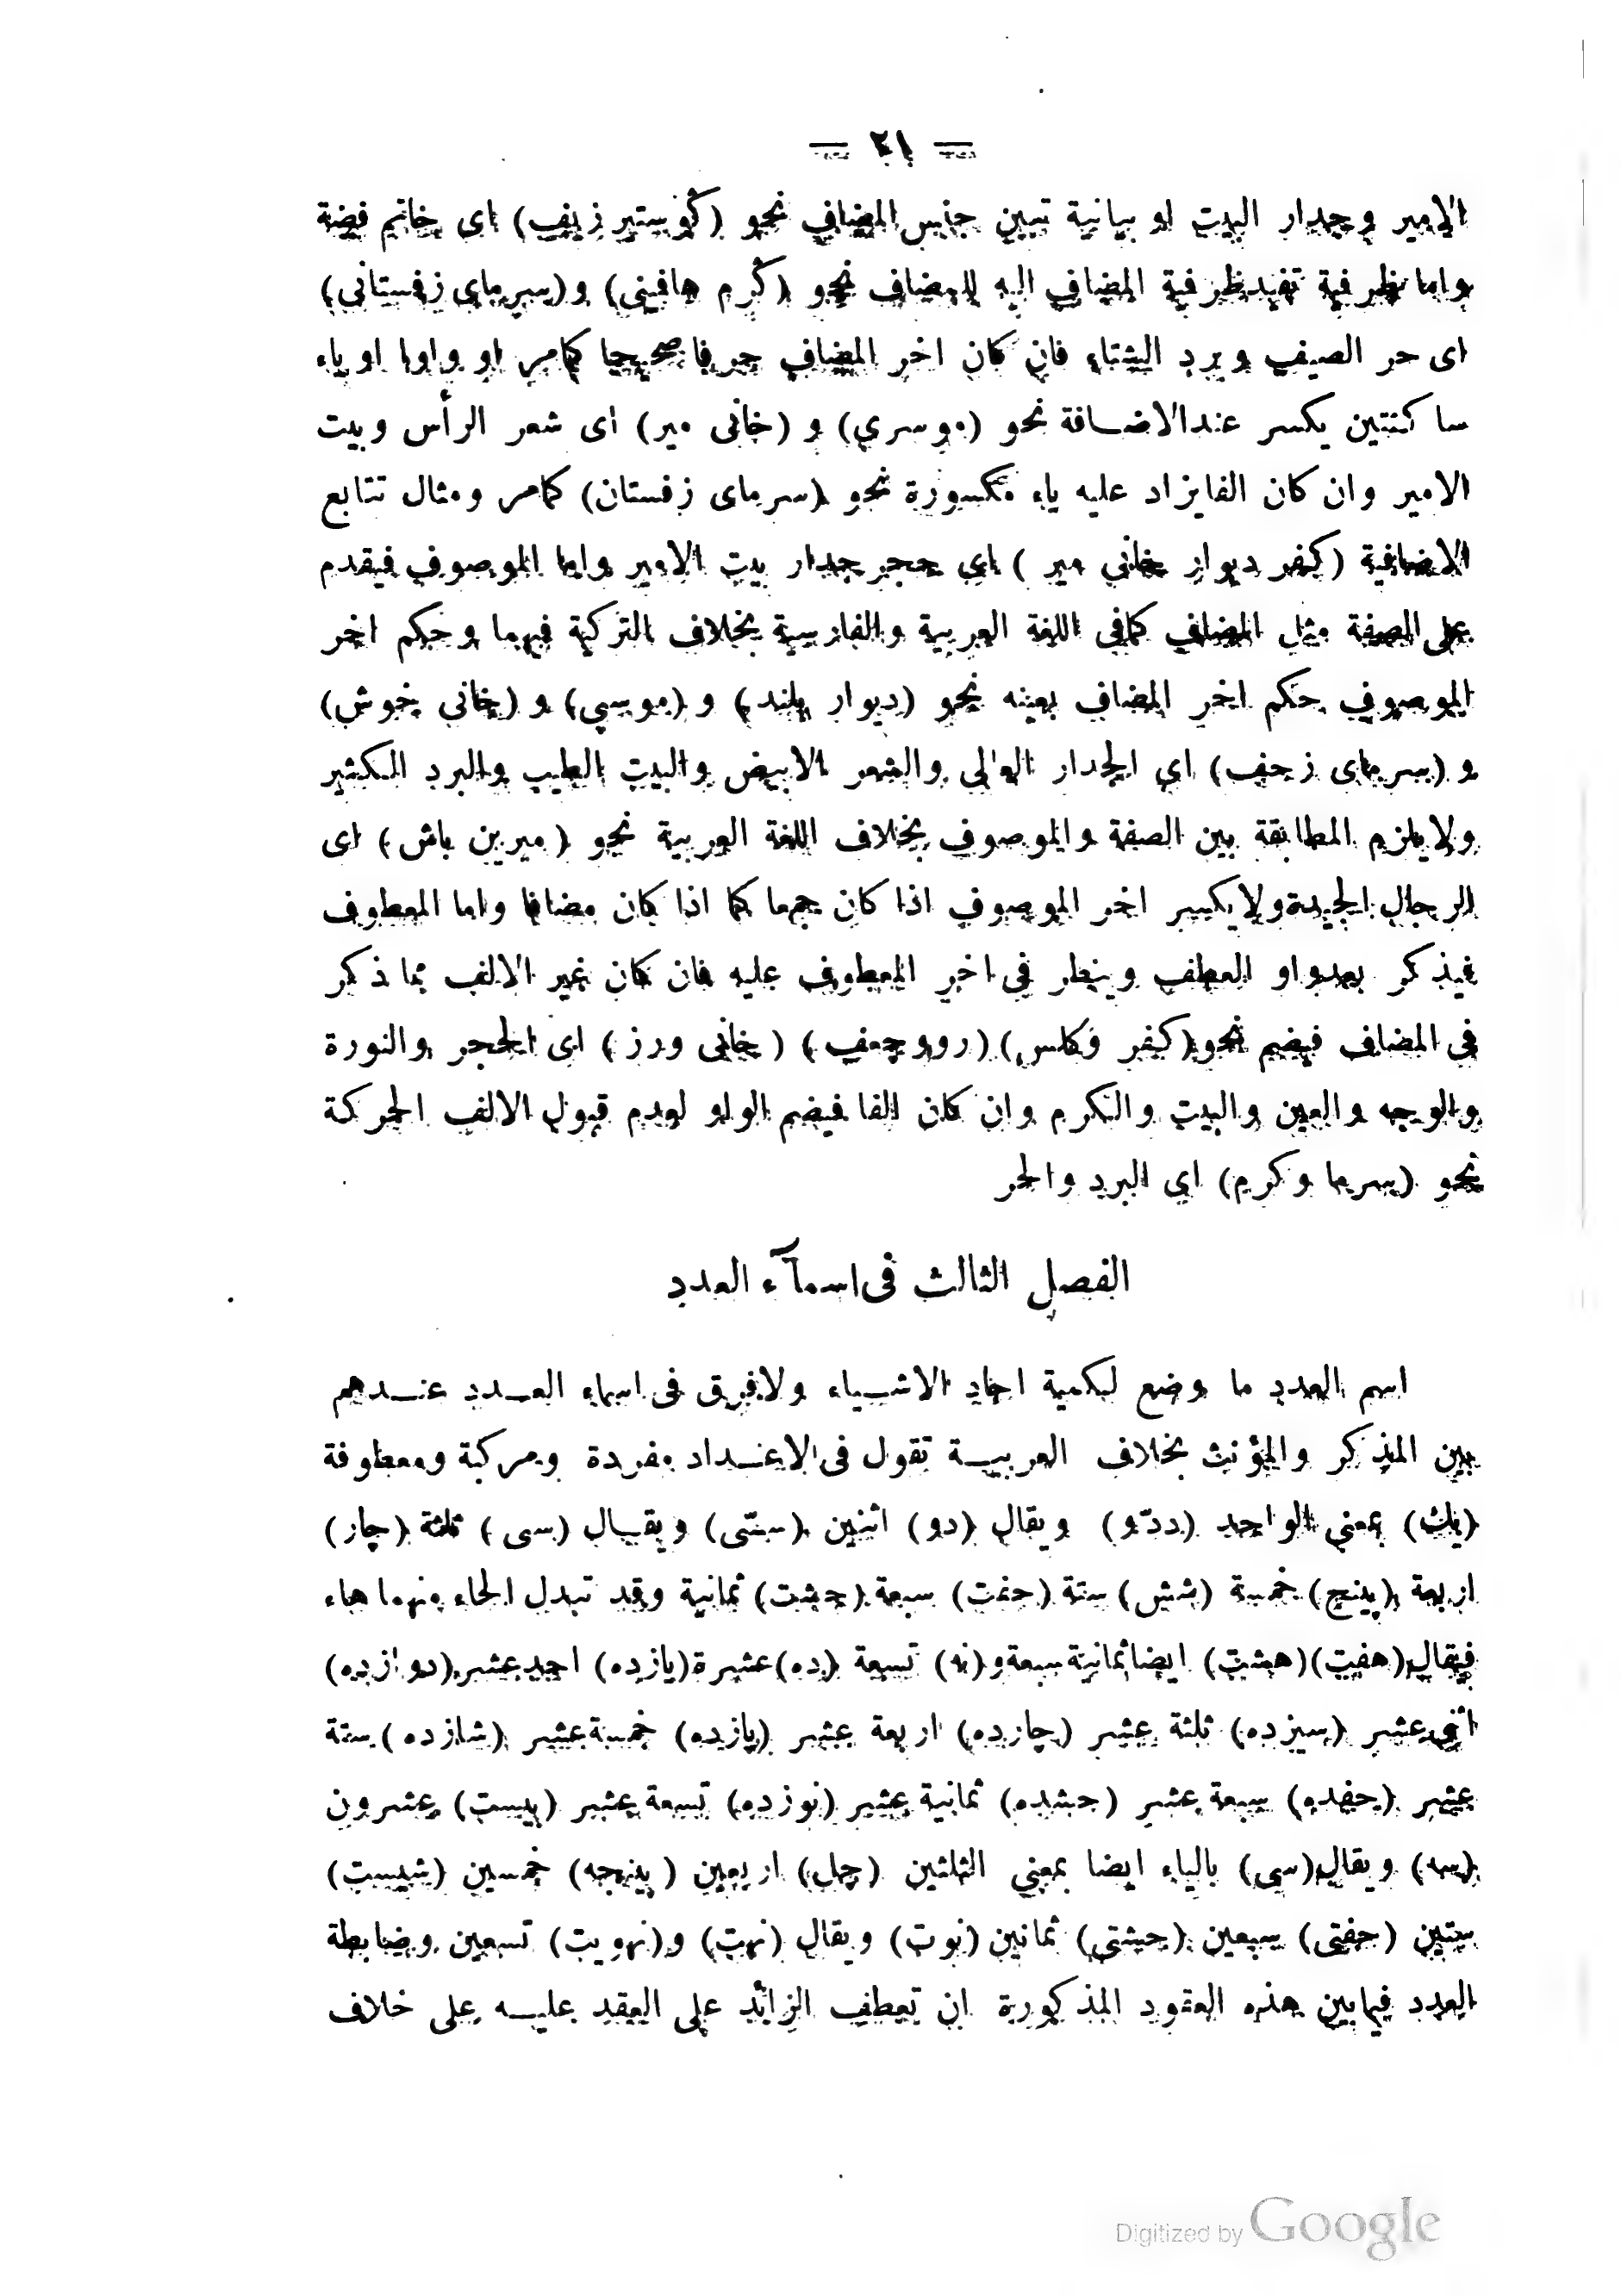 — ٢١ —
الامير وجدار البيت او بيانية تبين جنس المضاف نحو (كوستير زيف) اى خاتم فضة
واما ظرفية تفيد ظرفية المضاف اليه للمضاف نحو (كرم هافينى) و(سرماى زفستانى)
اى حر الصيف وبرد الشتاء فان كان اخر المضاف حرفا صحيحا كمامر او واوا او ياء
سا كنتين يكسر عندالاضافة نحو (موسرى) و (خانى مير) اى شعر الرأس وبيت
الامير وان كان الفايزاد عليه ياء مكسورة نحو (سرماى زفستان) كمامر ومثال تتابع
الاضافية (كفر ديوار خانى مير ) اى حجر جدار بيت الامير واما الموصوف فيقدم
على الصفة مثل المضاف كمافى اللغة العربية والفارسية بخلاف التركية فيهما وحكم اخر
الموصوف حكم اخر المضاف بعينه نحو (ديوار بلند) و (موسپى) و (خانى خوش)
و (سرماى زحف) اى الجدار العالى والشعر الابيض والبيت الطيب والبرد الكثير
ولايلزم المطابقة بين الصفة والموصوف بخلاف اللغة العربية نحو (ميرين باش) اى
الرجال الجيدة ولايكسر اخر الموصوف اذا كان جمعا كما اذا كان مضافا واما المعطوف
فيذكر بعدواو العطف وينظر فى اخر المعطوف عليه فان كان غير الالف مما ذكر
فى المضاف فيضم نحو(كفر وكلس) (رووچعف) (خانى ورز) اى الحجر والنورة
والوجه والعين والبيت والكرم وان كان الفا فيضم الواو لعدم قبول الالف الحركة
نحو (سرما وكرم) اى البرد والحر
الفصل الثالث فى اسمآء العدد
اسم العدد ما وضع لكمية احاد الاشياء ولافرق فى اسماء العدد عندهم
بين المذكر والمؤنث بخلاف العربية تقول فى الاعداد مفردة ومركبة ومعطوفة
(يك) بمعنى الواحد (ددّو) ويقال (دو) اثنين (سسّى) ويقال (سى) ثلثة (چار)
اربعة (پنج) خمسة (شش) ستة (حفت) سبعة (حشت) ثمانية وقد تبدل الحاء منهما هاء
فيقال (هفت)(هشت) ايضا ثمانية سبعة و(نه) تسعة (ده)عشرة(يازده) احدعشر(دوازده)
اثنى عشر (سيزده) ثلثة عشر (چارده) اربعة عشر (پازده) خمسة عشر (شازده) ستة
عشر (حفده) سبعة عشر (حشده) ثمانية عشر (نوزده) تسعة عشر (بيست) عشرون
(سه) ويقال(سى) بالياء ايضا بمعنى الثلثين (چل) اربعين (پنجه) خمسين (شيست)
ستين (حفتى) سبعين (حشتى) ثمانين (نوت) ويقال (نهت) و(نهويت) تسعين وضابطة
العدد فيمابين هذه العقود المذكورة ان تعطف الزائد على العقد عليه على خلاف
Digitized by Google